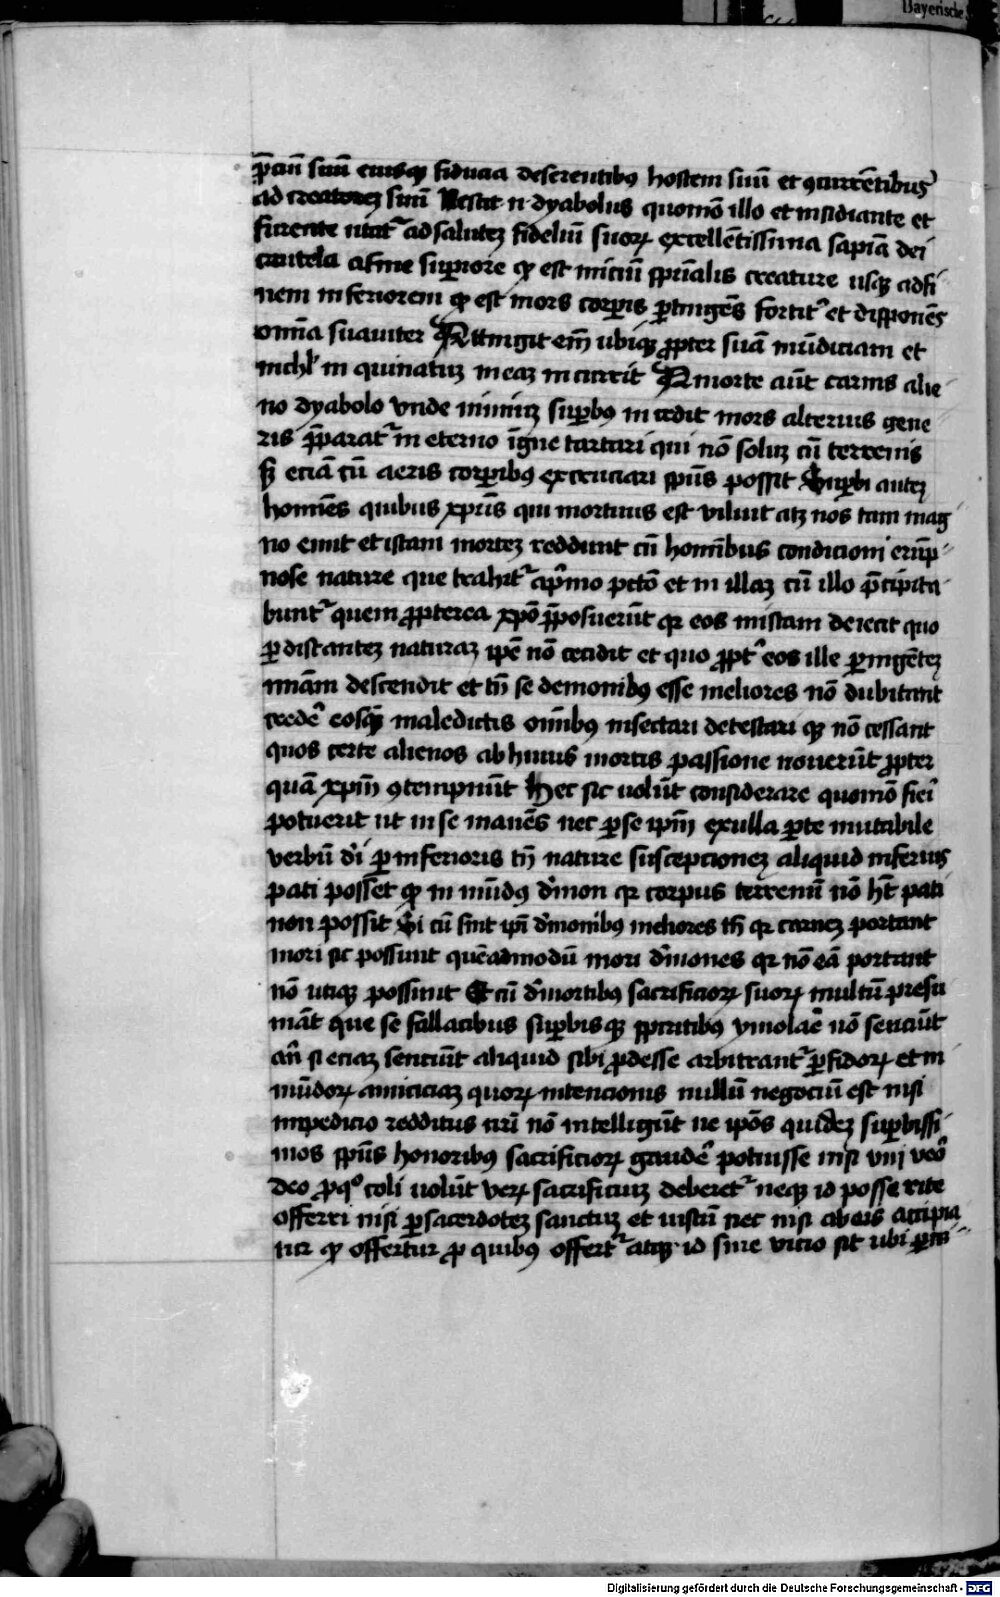 Bayerische
p̄ciū suū eiusqꝫ fiducia deserentibus hostem suū et ꝯcurrētibus
ad creatorez suū Nescit n̄ dyabolus quomō illo et insidiante et
furente utat᷑ ad salutez fideliū suoꝝ excellētissima sapiā dei
cautela a fine supiore qd̓ est iniciū spūalis creature usqꝫ ad fi
nem inferiorem qd̓ est mors corpis ꝑtingēs fortit᷑ et dispponēs
omīa suauiter Attingit em̄ ubiqꝫ ꝓpter suā mūdiciam et
nichl̓ in quinatuz in eaz incurrit A morte aūt carnis alie
no dyabolo vnde nimiuz supbus incedit mors alterius gene
ris p̄parat᷑ in eterno igne tartari qui nō soluz cū terrenis
sꝫ eciā cū aeris corpibus excruciari spūs possit Supbi autez
homīes quibus xpūs qui mortuus est viluit atꝫ nos tam mag
no emit et istam mortez reddunt cū homībus condicioni erūp
nose nature que trahit᷑ a p̓mo pctō et in illaz cū illo p̄cipita
bunt᷑ quem ꝓpterea xpō p̄posuerūt qꝛ eos in istam deiecit quo
ꝑ distantez naturaz ipē nō cecidit et quo ꝓpt᷑ eos ille ꝑ ingētez
miam̄ descendit et tn̄ se demonibus esse meliores nō dubitant
credē eosqꝫ maledictis omībus insectari detestari qꝫ nō cessant
quos certe alienos ab huius mortis passione nouerūt ꝓpter
quā xpm̄ ꝯtempnūt Hec sic uolūt considerare quomō fieri
potuerit ut in se manēs nec ꝑ se ipm̄ ex ulla ꝑte mutabile
verbū di̅ ꝑ inferioris tn̄ nature suscepcionez aliquid inferius
pati posset qd̓ in mūdus d̓mon qꝛ corpus terrenū nō ht̄ pati
non possit Si cū sint ipī d̓monibus meliores tn̄ qꝛ carnez portant
mori sic possunt quēadmodū mori d̓mones qꝛ nō eā portant
nō utiqꝫ possunt Et cū d̓ mortibus sacrificioꝝ suoꝝ multū presu
māt que se fallacibus supbisqꝫ spiritibus ymolare nō senciūt
an̄ si eciaz senciūt aliquid sibi ꝓdesse arbitrant᷑ ꝑfidoꝝ et in
mūdoꝝ amiciciaz quoꝝ intencionis nullū negociū est nisi
impedicio redditus nrī nō intelligūt ne ipōs quidez supbissi
mos spūs honoribus sacrificioꝝ gaudē potuisse nisi vni vero
deo ꝓ qº coli uolūt veꝝ sacrificiuz deberet᷑ neqꝫ id posse rite
offerri nisi ꝑ sacerdotez sanctuz et iustū nec nisi ab eis accipia
tur qd̓ offertur ꝓ quibus offert᷑ atqꝫ id sine vicio sit ubi
Digitalisierung gefördert durch die Deutsche Forschungsgemeinschaft - DFG